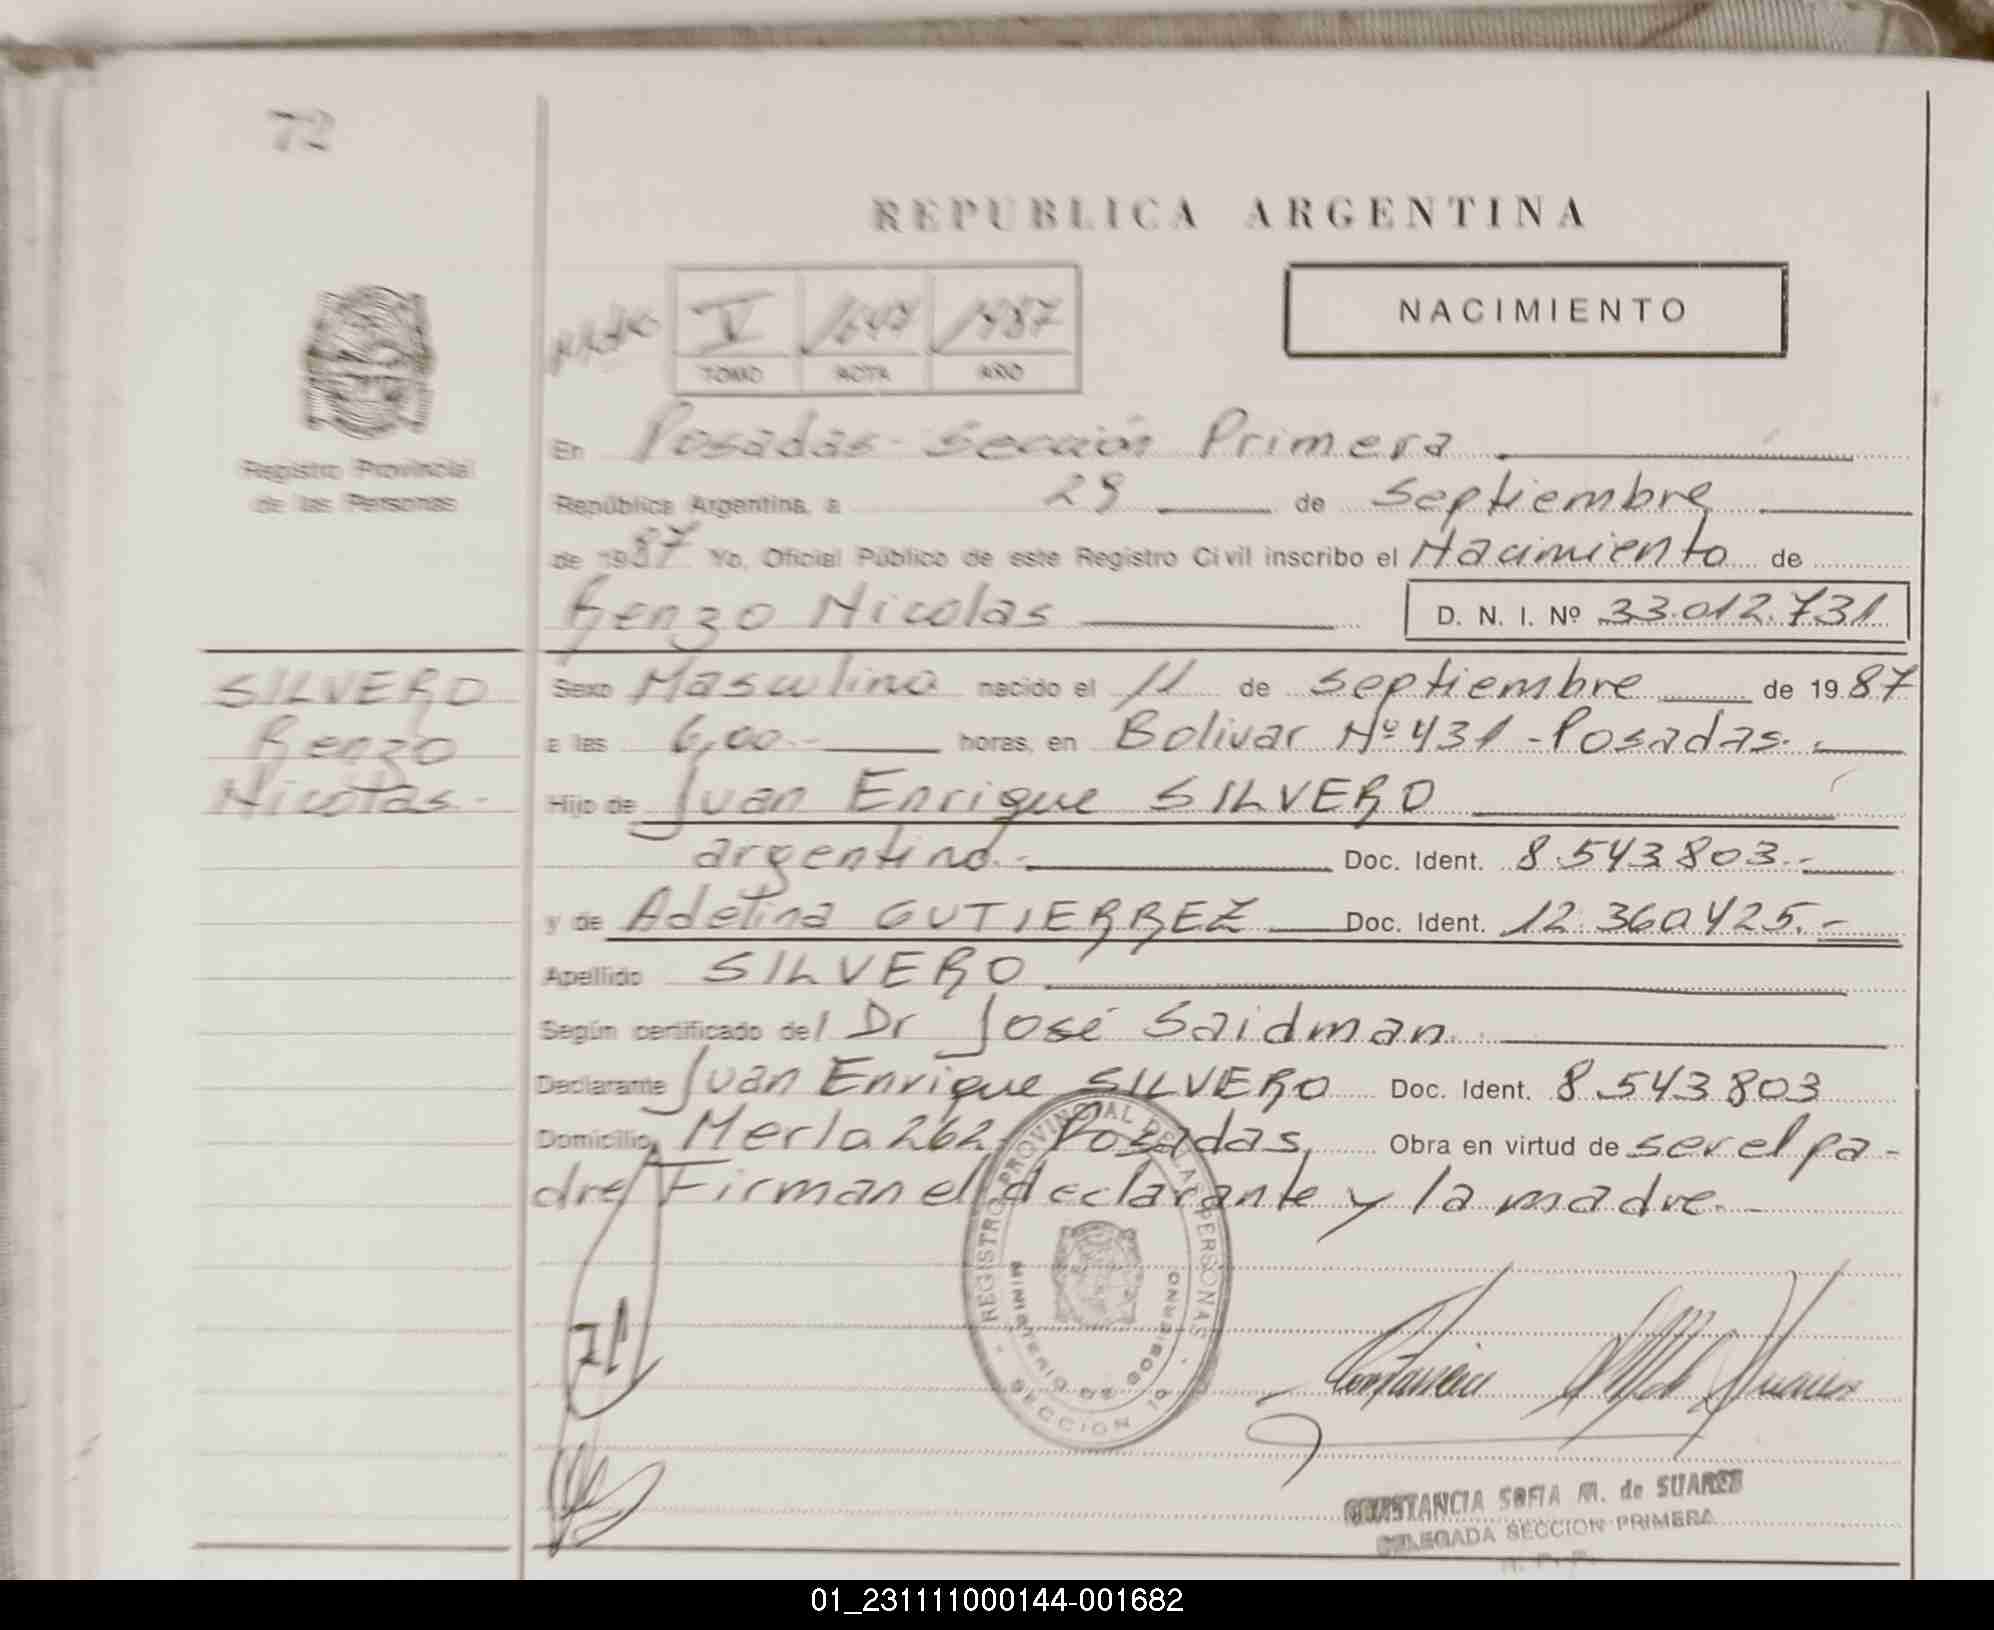 72
REPUBLICA ARGENTINA
NACIMIENTO
V 1987
TOMO ACTA AÑO
Registro Provincial
de las Personas
En Posadas - Sección Primera
República Argentina, a 29 de Septiembre
de 1987 Yo, Oficial Público de este Registro Civil inscribo el Nacimiento de
Renzo Nicolas D. N. I. Nº 33.012.731
SILVERO
Renzo
Nicolas.-
Sexo Masculino nacido el 11 de Septiembre de 1987
a las 6,00.- horas, en Bolivar Nº 431 - Posadas.-
Hijo de Juan Enrique SILVERO
argentino.- Doc. Ident. 8.543.803.-
y de Adelina GUTIERREZ Doc. Ident. 12.360.425.-
Apellido SILVERO
Según certificado del Dr José Saidman.
Declarante Juan Enrique SILVERO Doc. Ident. 8.543.803
Domicilio Merlo 262 - Posadas, Obra en virtud de ser el pa-
dre/ Firman el declarante y la madre.-
REGISTRO PROVINCIAL DE LAS PERSONAS
MINISTERIO DE GOBIERNO
SECCION 1ª
71
CONSTANCIA SOFIA M. de SUAREZ
DELEGADA SECCION PRIMERA
R. P. P.
01_231111000144-001682